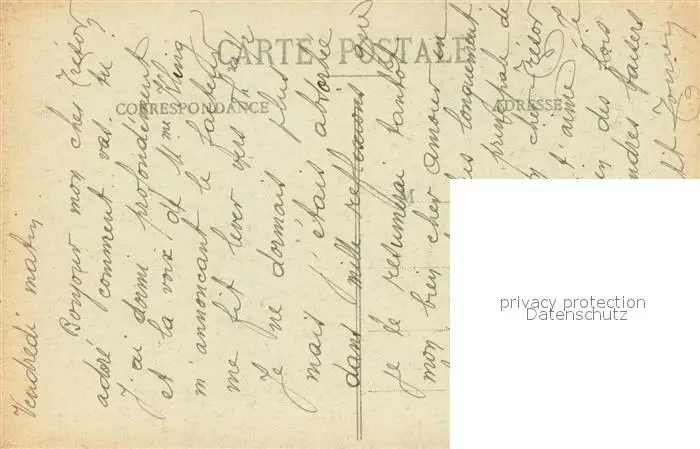 CARTE POSTALE
CORRESPONDANCE
ADRESSE
M
Vendredi matin
Bonjour mon cher Trésor
adoré comment vas tu
J'ai dormi profondément
et la voix de Mme
m'annonçant le facteur
me fit lever vers
Je ne dormais plus
mais j'étais absorbée
dans mille reflexions que
je te resumerai tantôt
mon bien cher amour en
plus longuement
principal de
cher Trésor
t'aime
en des fois
tendres baisers
privacy protection
Datenschutz